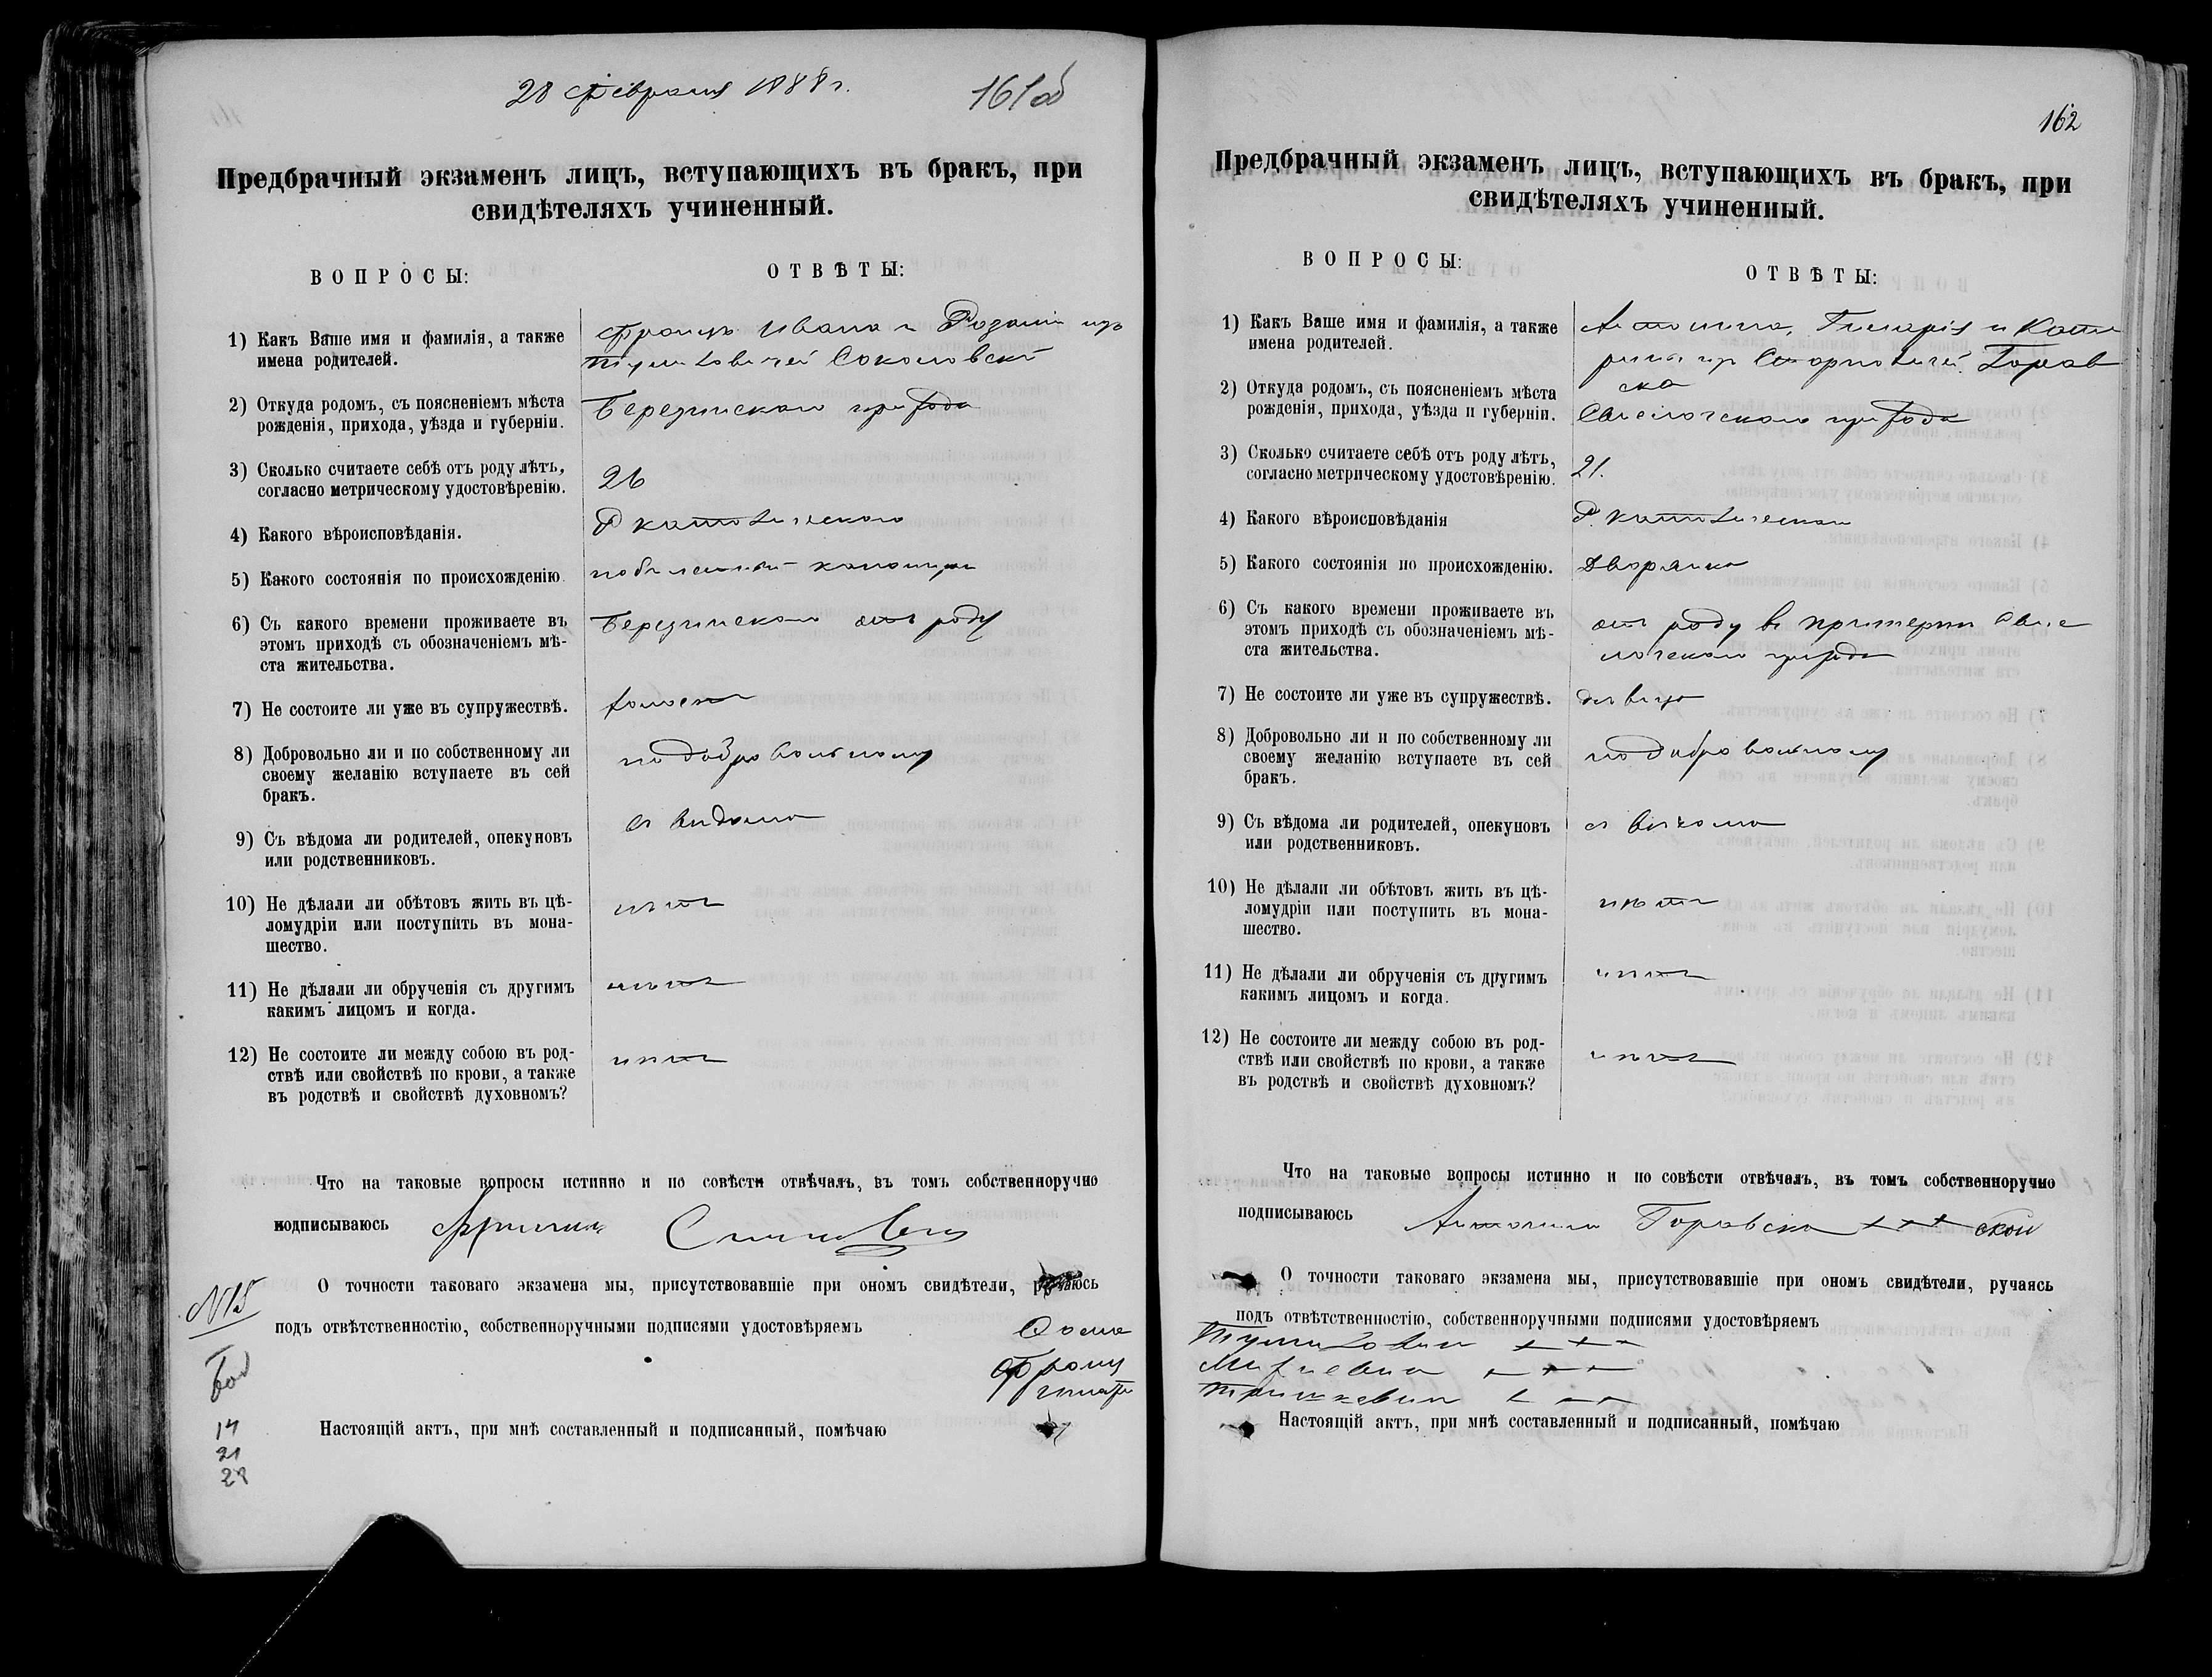 28 Февраля 1888 г.
161об
Предбрачный экзаменъ лицъ, вступающихъ въ бракъ, при
свидѣтеляхъ учиненный.
ВОПРОСЫ:
ОТВѢТЫ:
1) Какъ Ваше имя и фамилія, а также
имена родителей.
Францъ Ивана и Розаліи изъ
Соколовскій
2) Откуда родомъ, съ поясненіемъ мѣста
рожденія, прихода, уѣзда и губерніи.
Березинскаго прихода
3) Сколько считаете себѣ отъ роду лѣтъ,
согласно метрическому удостовѣренію.
26
4) Какого вѣроисповѣданія.
Р католическаго
5) Какого состоянія по происхожденію.
6) Съ какого времени проживаете въ
этомъ приходѣ съ обозначеніемъ мѣ-
ста жительства.
Березинскаго отъ роду
7) Не состоите ли уже въ супружествѣ.
холостъ
8) Добровольно ли и по собственному ли
своему желанію вступаете въ сей
бракъ.
по добровольному
9) Съ вѣдома ли родителей, опекуновъ
или родственниковъ.
съ видома
10) Не дѣлали ли обѣтовъ жить въ цѣ-
ломудріи или поступить въ мона-
шество.
нѣтъ
11) Не дѣлали ли обрученія съ другимъ
какимъ лицомъ и когда.
нѣтъ
12) Не состоите ли между собою въ род-
ствѣ или свойствѣ по крови, а также
въ родствѣ и свойствѣ духовномъ?
нѣтъ
Что на таковые вопросы истинно и по совѣсти отвѣчалъ, въ томъ собственноручно
подписываюсь
О точности таковаго экзамена мы, присутствовавшіе при ономъ свидѣтели, ручаюсь
подъ отвѣтственностію, собственноручными подписями удостовѣряемъ
Ѳома
Франц
Игнатій
N15
Настоящій актъ, при мнѣ составленный и подписанный, помѣчаю
14
21
28
162
Предбрачный экзаменъ лицъ, вступающихъ въ бракъ, при
свидѣтеляхъ учиненный.
ВОПРОСЫ:
ОТВѢТЫ:
1) Какъ Ваше имя и фамилія, а также
имена родителей.
Антонина, Гиларія и Кате
рины изъ Горав
ска
2) Откуда родомъ, съ поясненіемъ мѣста
рожденія, прихода, уѣзда и губерніи.
Свислочскаго прихода
3) Сколько считаете себѣ отъ роду лѣтъ,
согласно метрическому удостовѣренію.
21.
4) Какого вѣроисповѣданія
Р. католическаго
5) Какого состоянія по происхожденію.
Дворянка
6) Съ какого времени проживаете въ
этомъ приходѣ съ обозначеніемъ мѣ-
ста жительства.
отъ роду въ Свис
лочскаго прихода
7) Не состоите ли уже въ супружествѣ.
девица
8) Добровольно ли и по собственному ли
своему желанію вступаете въ сей
бракъ.
по добровольному
9) Съ вѣдома ли родителей, опекуновъ
или родственниковъ.
съ видома
10) Не дѣлали ли обѣтовъ жить въ цѣ-
ломудріи или поступить въ мона-
шество.
нѣтъ
11) Не дѣлали ли обрученія съ другимъ
какимъ лицомъ и когда.
нѣтъ
12) Не состоите ли между собою въ род-
ствѣ или свойствѣ по крови, а также
въ родствѣ и свойствѣ духовномъ?
нѣтъ
Что на таковые вопросы истинно и по совѣсти отвѣчалъ, въ томъ собственноручно
подписываюсь Антонина Горавска +++ ской
О точности таковаго экзамена мы, присутствовавшіе при ономъ свидѣтели, ручаясь
подъ отвѣтственностію, собственноручными подписями удостовѣряемъ
+++
+++
+++
Настоящій актъ, при мнѣ составленный и подписанный, помѣчаю